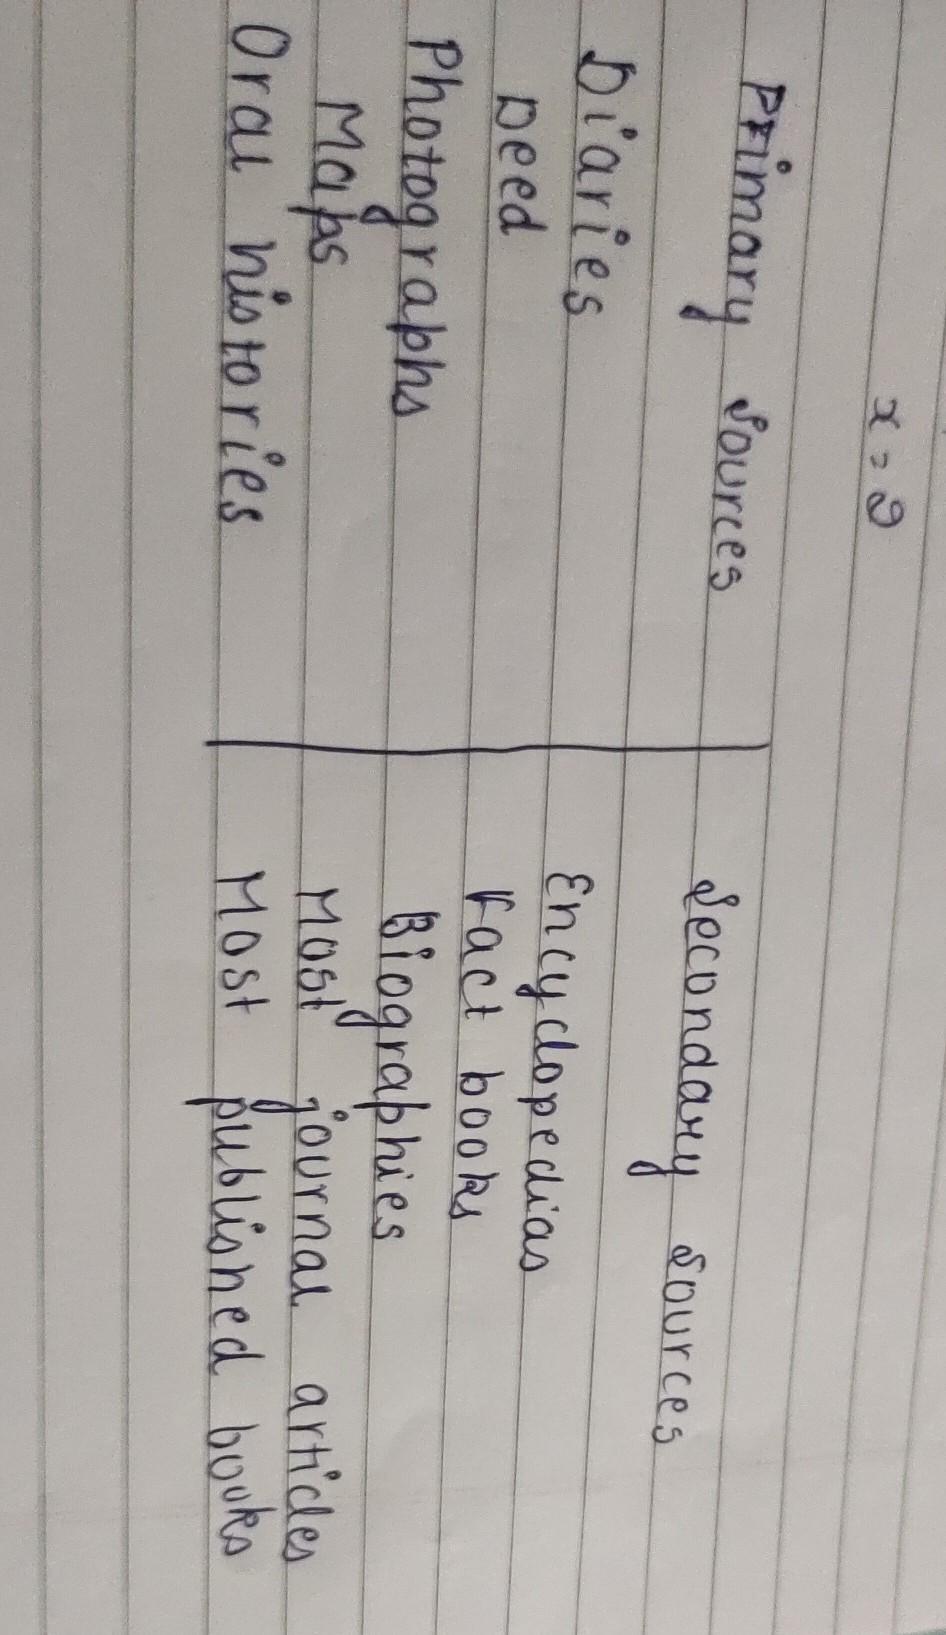 x = 2
Primary Sources Secondary Sources
Diaries Encyclopedias
Deed Fact books
Photographs Biographies
Maps Most journal articles
Oral histories Most published books